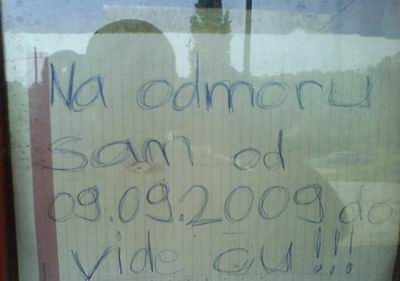 Na odmoru
sam od
09.09.2009 do
vide ću!!!